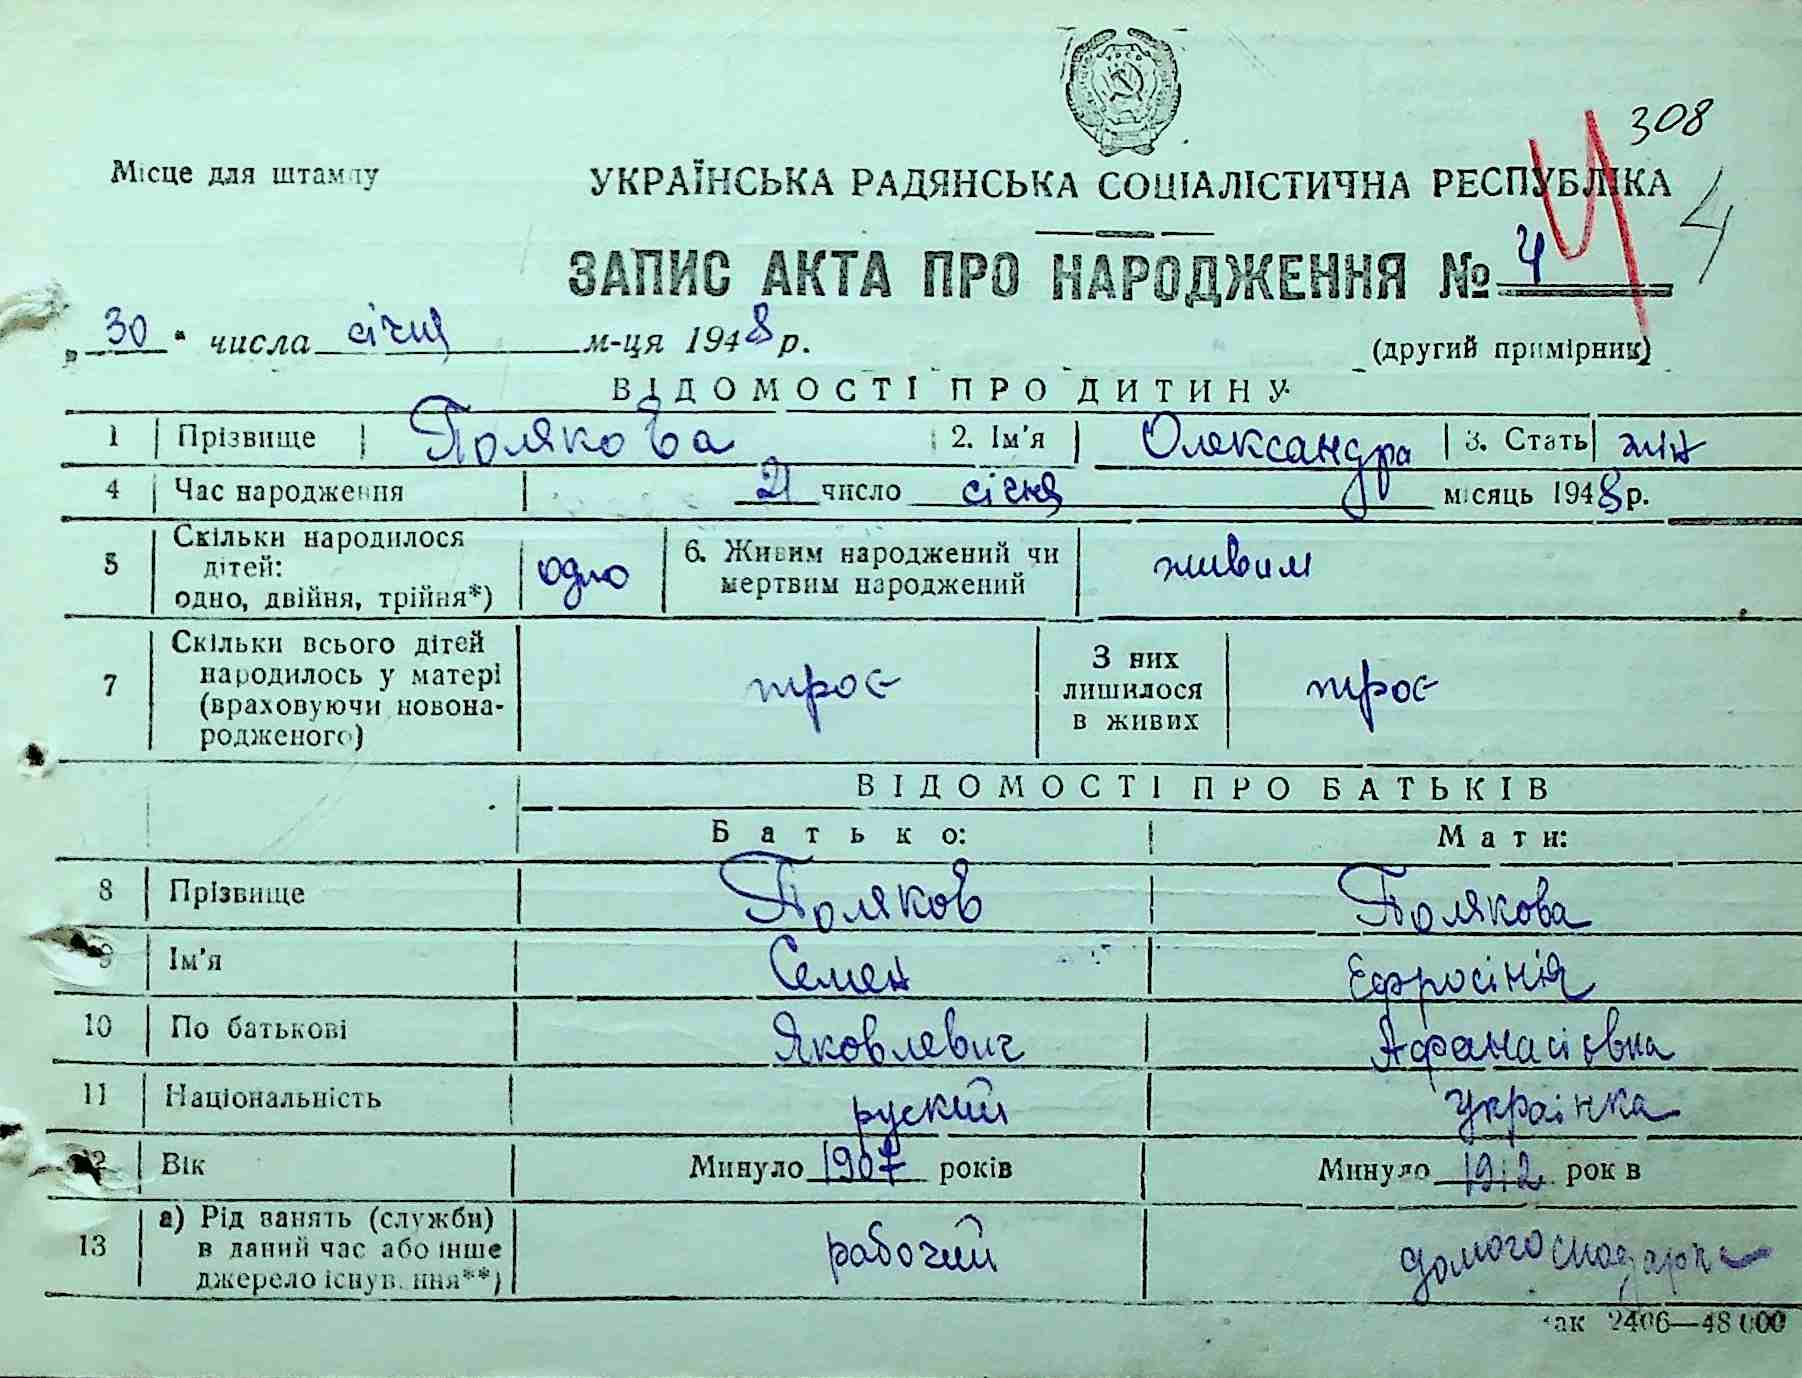 308
Місце для штампу
УКРАЇНСЬКА РАДЯНСЬКА СОЦІАЛІСТИЧНА РЕСПУБЛІКА
4
ЗАПИС АКТА ПРО НАРОДЖЕННЯ № 4
„30" числа січня м-ця 1948 р.
(другий примірник)
ВІДОМОСТІ ПРО ДИТИНУ
1 Прізвище Полякова 2. Ім'я Олександра 3. Стать жін
4 Час народження 21 число січня місяць 1948 р.
5 Скільки народилося дітей: одно, двійня, трійня*) одно 6. Живим народжений чи мертвим народжений живим
7 Скільки всього дітей народилось у матері (враховуючи новонародженого) троє З них лишилося в живих троє
ВІДОМОСТІ ПРО БАТЬКІВ
Батько: Мати:
8 Прізвище Поляков Полякова
9 Ім'я Семен Ефросінія
10 По батькові Яковлевич Афанасіовна
11 Національність руский українка
12 Вік Минуло 1907 років Минуло 1912 років
13 а) Рід занять (служби) в даний час або інше джерело існування**) рабочий домогосподарка
Зак 2406—48 000